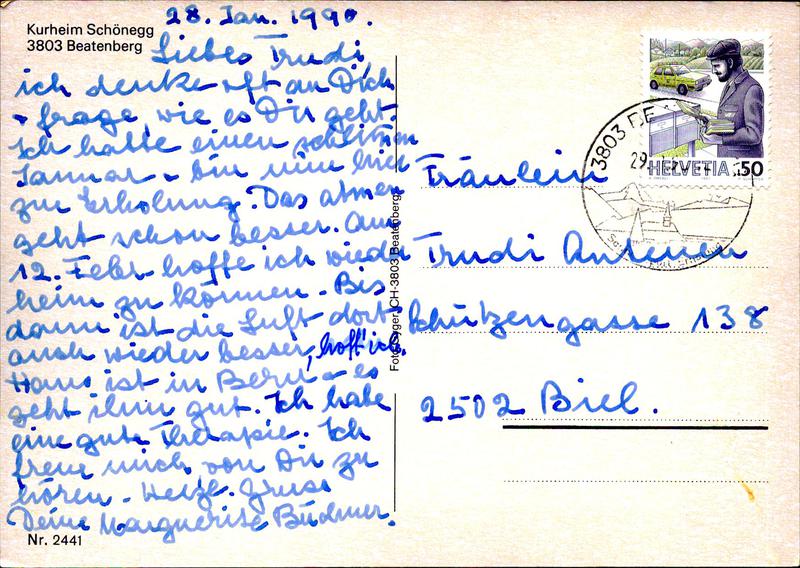 Kurheim Schönegg
3803 Beatenberg
28. Jan. 1990.
Liebes Trudi
ich denke oft an Dich
+ frage wie es Dir geht.
Ich hatte einen schlimmen
Januar - bin nun hier
zur Erholung. Das atmen
geht schon besser. Am
12. Febr. hoffe ich wieder
heim zu können. Bis
dann ist die Luft dort
auch wieder besser, hoff' ich.
Hans ist in Bern - es
geht ihm gut. Ich habe
eine gute Therapie. Ich
freue mich von Dir zu
hören. Herzl. Gruss
Deine Marguerite
Nr. 2441
Foto CH-3803 Beatenberg
HELVETIA 50
3803 BE
29
Fräulein
Trudi Antenen
Schützengasse 138
2502 Biel.